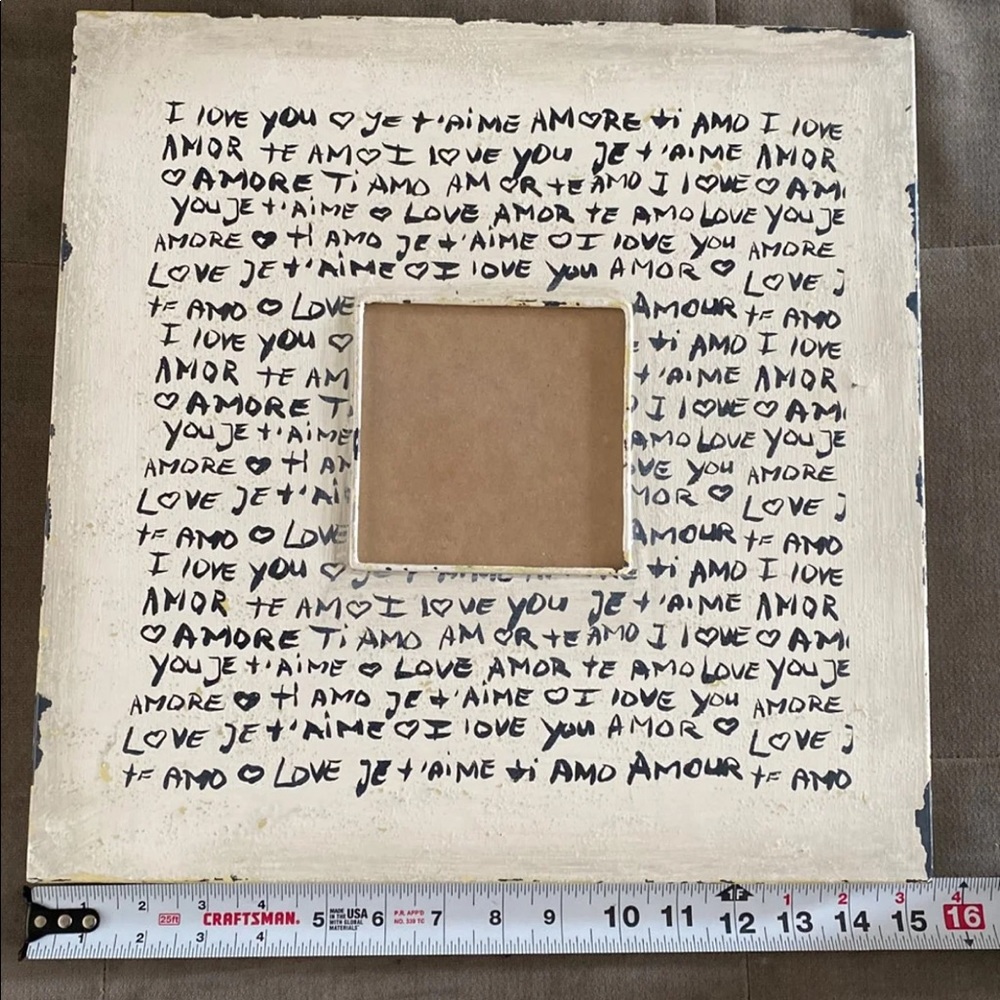 I love you ♡ Je t'Aime AMORE ti AMO I love
AMOR te AMO I love you Je t'Aime AMOR
♡ AMORE Ti AMO AMOR te AMO I love ♡ AM
you Je t'Aime ♡ LOVE AMOR te AMO LOVE you Je
AMORE ♡ ti AMO Je t'Aime ♡ I love you AMORE
LOVE Je t'aime ♡ I love you AMOR ♡ LOVE J
te AMO ♡ LOVE AMOUR te AMO
I love you ♡ ti AMO I love
AMOR te AM t'AIME AMOR
♡ AMORE T I love ♡ AM
you Je t'Aime AMO LOVE you Je
AMORE ♡ ti AM VE you AMORE
LOVE Je t'Ai MOR ♡ LOVE J
te AMO ♡ LOVE AMOUR te AMO
I love you ♡ Je t'Aime ti AMO I love
AMOR te AMO I love you Je t'Aime AMOR
♡ AMORE Ti AMO AMOR te AMO I love ♡ AM
you Je t'Aime ♡ LOVE AMOR te AMO LOVE you Je
AMORE ♡ ti AMO Je t'Aime ♡ I love you AMORE
LOVE Je t'aime ♡ I love you AMOR ♡ LOVE J
te AMO ♡ LOVE Je t'Aime ti AMO AMOUR te AMO
1 2 3 4 1F 1 2 3 4
25ft CRAFTSMAN. 5 MADE IN THE USA WITH GLOBAL MATERIALS 6 P.R. APP'D NO. 339 TC 7 8 9 10 11 12 13 14 15 16
1 2 3 4